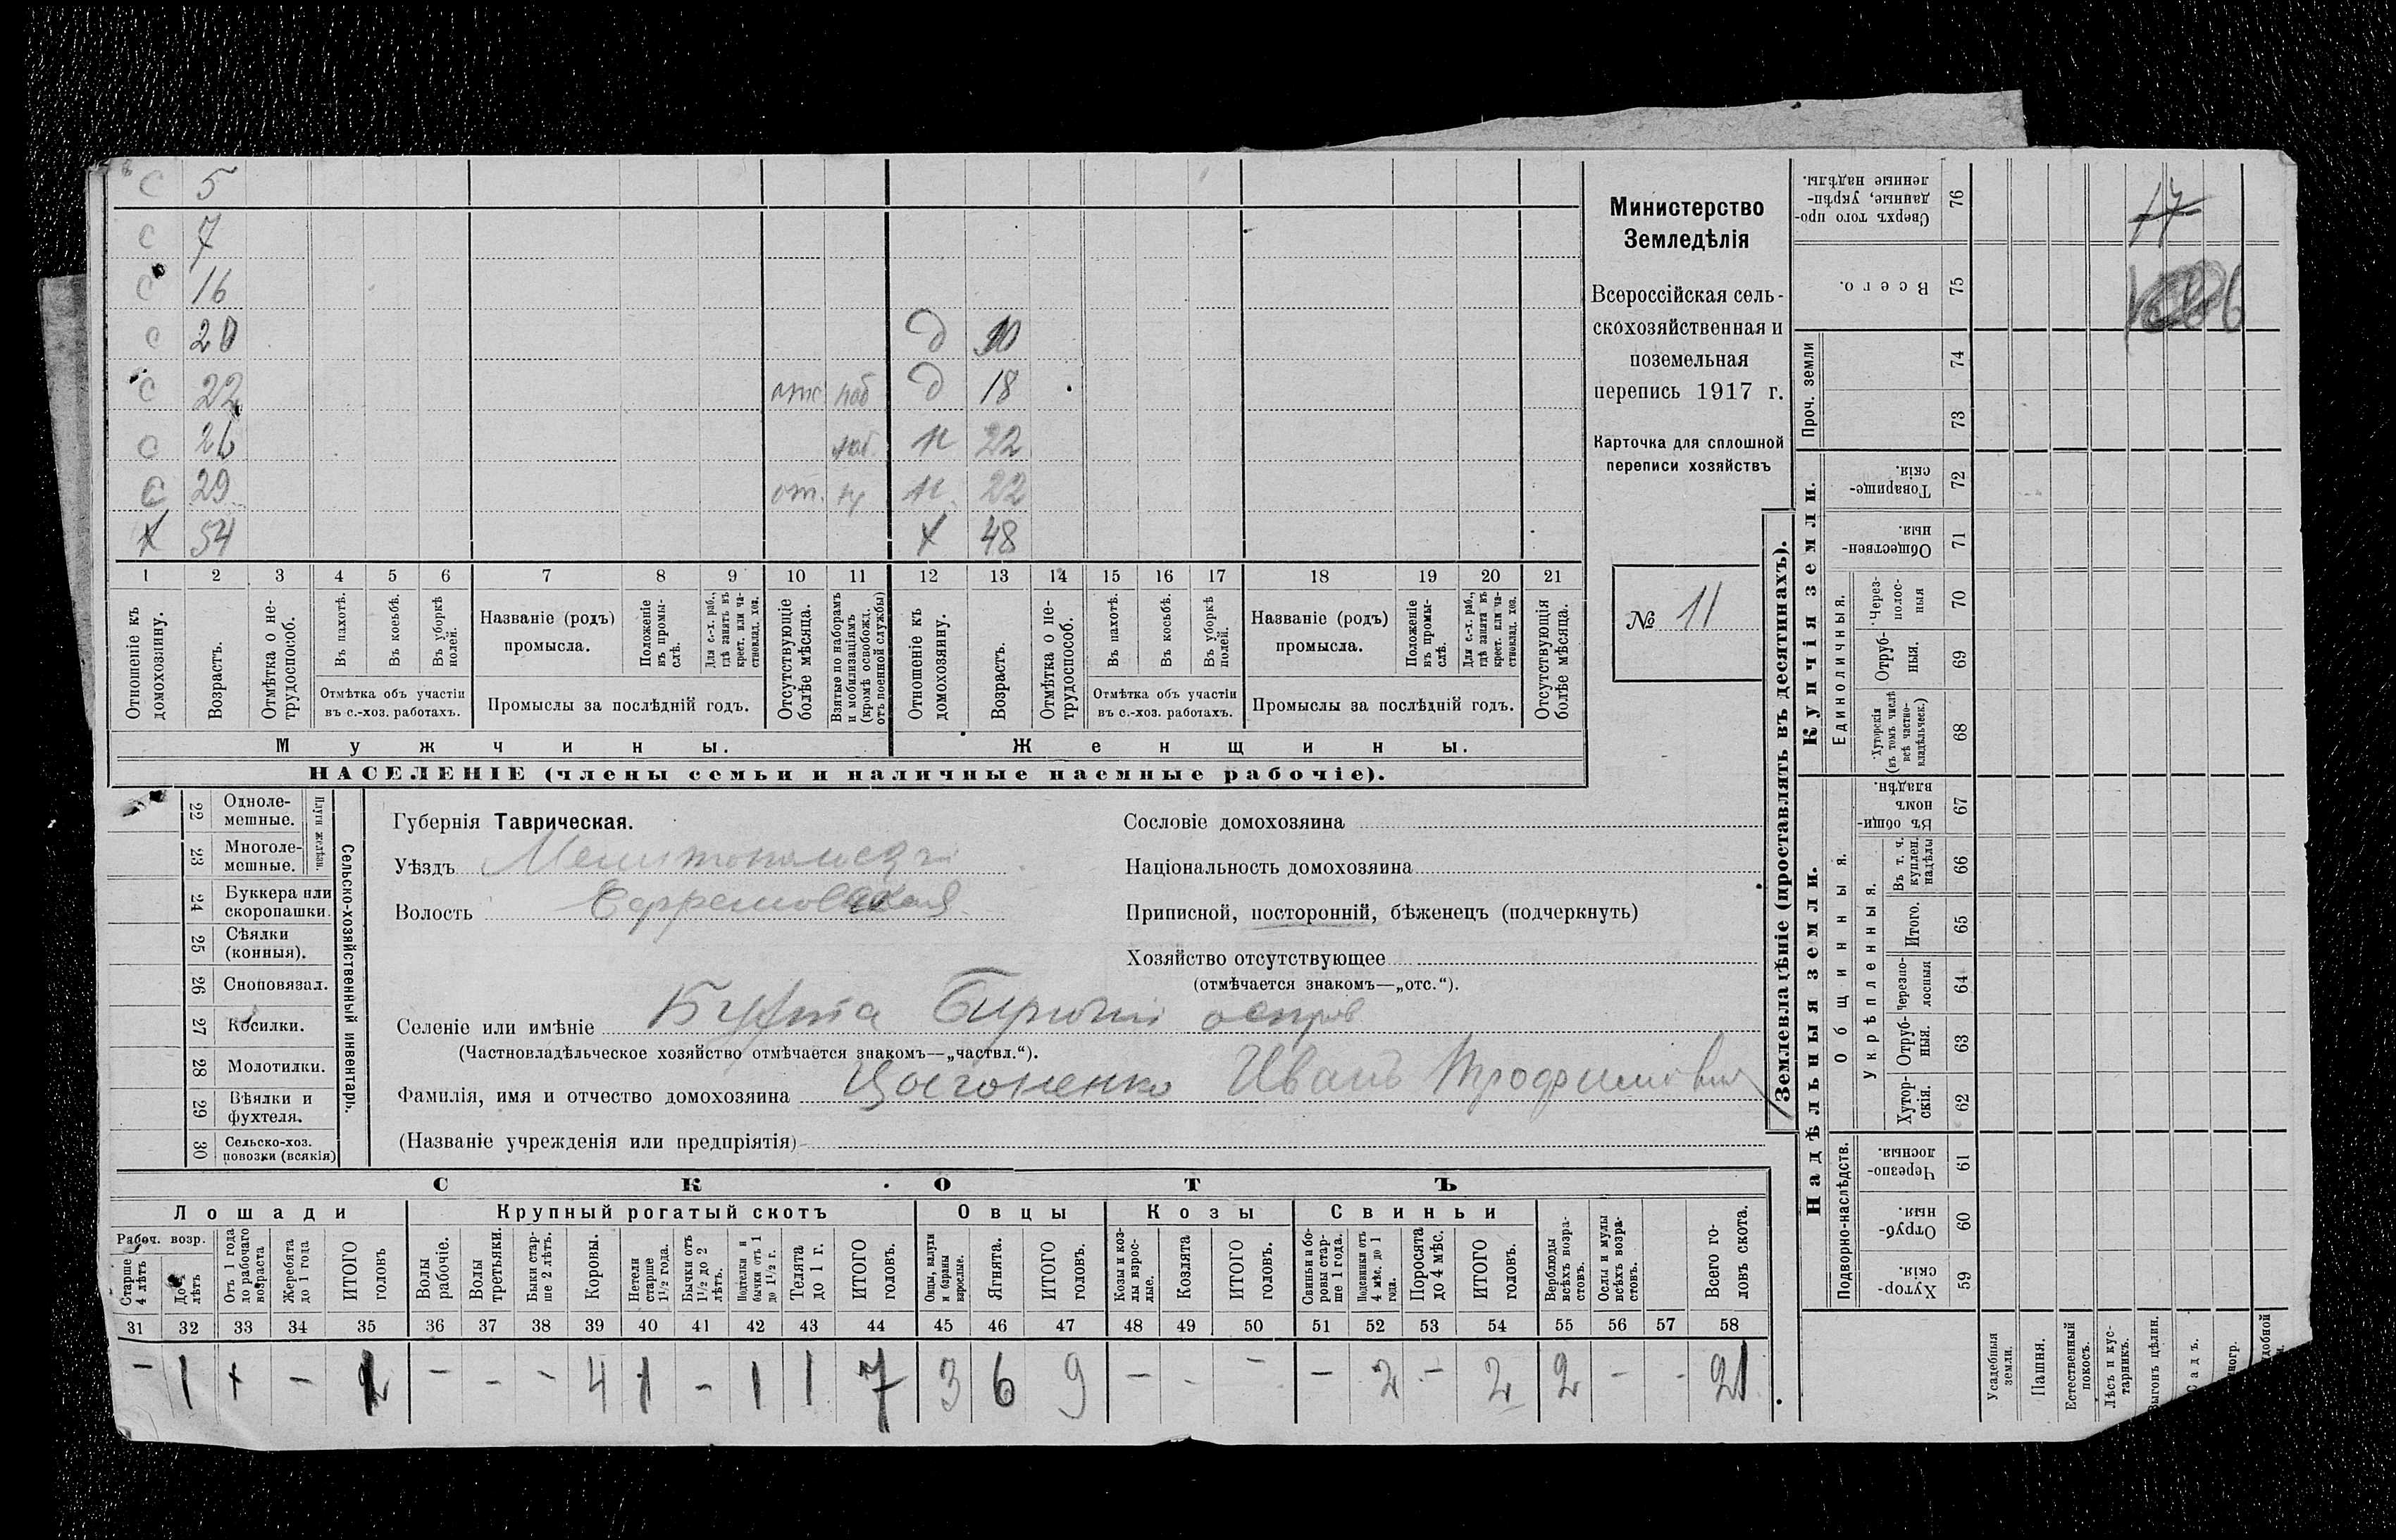 С 5
С 7
С 16
С 20 д 10
С 22 отс наб д 18
С 26 наб. н 22
С 29 от. н 22
х 54 х 48
1 2 3 4 5 6 7 8 9 10 11 12 13 14 15 16 17 18 19 20 21
Отношеніе къ домохозяину.
Возрастъ.
Отмѣтка о не-трудоспособ.
Въ пахотѣ.
Въ косьбѣ.
Въ уборкѣ полей.
Отмѣтка объ участіи въ с.-хоз. работахъ.
Названіе (родъ) промысла.
Положеніе въ промы-слѣ.
Для с.-х. раб., гдѣ занятъ въ крест. или ча-стновлад. хоз.
Промыслы за послѣдній годъ.
Отсутствующіе болѣе мѣсяца.
Взятые по наборамъ и мобилизаціямъ (кромѣ освобожд. отъ военной службы)
Отношеніе къ домохозяину.
Возрастъ.
Отмѣтка о не-трудоспособ.
Въ пахотѣ.
Въ косьбѣ.
Въ уборкѣ полей.
Отмѣтка объ участіи въ с.-хоз. работахъ.
Названіе (родъ) промысла.
Положеніе въ промы-слѣ.
Для с.-х. раб., гдѣ занята въ крест. или ча-стновлад. хоз.
Промыслы за послѣдній годъ.
Отсутствующія болѣе мѣсяца.
Мужчины. Женщины.
НАСЕЛЕНІЕ (члены семьи и наличные наемные рабочіе).
Министерство
Земледѣлія
Всероссійская сель-
скохозяйственная и
поземельная
перепись 1917 г.
Карточка для сплошной
переписи хозяйствъ
№ 11
Сельско-хозяйственный инвентарь.
Плуги желѣзн.
22 Одноле-мешные.
23 Многоле-мешные.
24 Буккера или скоропашки.
25 Сѣялки (конныя).
26 Сноповязал.
27 Косилки.
28 Молотилки.
29 Вѣялки и фухтеля.
30 Сельско-хоз. повозки (всякія)
Губернія Таврическая.
Уѣздъ Мелитопольскій
Волость Ефремовская
Сословіе домохозяина
Національность домохозяина
Приписной, посторонній, бѣженецъ (подчеркнуть)
Хозяйство отсутствующее
(отмѣчается знакомъ—„отс.“).
Селеніе или имѣніе Бирючій остров
(Частновладѣльческое хозяйство отмѣчается знакомъ—„частвл.“).
Фамилія, имя и отчество домохозяина Иванъ Трофимович
(Названіе учрежденія или предпріятія)
СКОТЪ
Лошади Крупный рогатый скотъ Овцы Козы Свиньи
Рабоч. возр.
Старше 4 лѣтъ
До 4 лѣтъ
Отъ 1 года до рабочаго возраста
Жеребята до 1 года
ИТОГО головъ
Волы рабочіе.
Волы третьяки.
Быки стар-ше 2 лѣтъ.
Коровы.
Нетели старше 1½ года.
Бычки отъ 1½ до 2 лѣтъ.
Подтелки и бычки отъ 1 до 1½ г.
Телята до 1 г.
ИТОГО головъ.
Овцы, валухи и бараны взрослые.
Ягнята.
ИТОГО головъ.
Козы и коз-лы взрос-лые.
Козлята
ИТОГО головъ.
Свиньи и бо-ровы стар-ше 1 года.
Подсвинки отъ 4 мѣс. до 1 года.
Поросята до 4 мѣс.
ИТОГО головъ.
Верблюды всѣхъ возра-стовъ.
Ослы и мулы всѣхъ возра-стовъ.
Всего го-ловъ скота.
31 32 33 34 35 36 37 38 39 40 41 42 43 44 45 46 47 48 49 50 51 52 53 54 55 56 57 58
- 1 + - - - - 4 1 - 1 1 7 3 6 9 - - - - 2 - 2 2 - - 21
Землевладѣніе (проставлять въ десятинахъ).
Надѣльныя земли. Купчія земли. Проч. земли
Подворно-наслѣдств.
Общинныя.
Укрѣпленныя.
Единоличныя.
Сверхъ того про-данные, укрѣп-ленные надѣлы. 76
Всего. 75
74
73
Товарище-скія. 72
Обществен-ныя 71
Через-полос-ныя 70
Отруб-ныя. 69
Хуторскія (въ томъ числѣ всѣ частно-владѣльческ.) 68
Въ общин-номъ владѣн. 67
Въ т. ч. куплен. надѣлы 66
Итого. 65
Черезпо-лосныя 64
Отруб-ныя. 63
Хутор-скія. 62
Черезпо-лосныя. 61
Отруб-ныя. 60
Хутор-скія. 59
17
Усадебныя земли.
Пашня.
Естественный покосъ.
Лѣсъ и кус-тарникъ.
Выгонъ цѣлин.
Садъ.